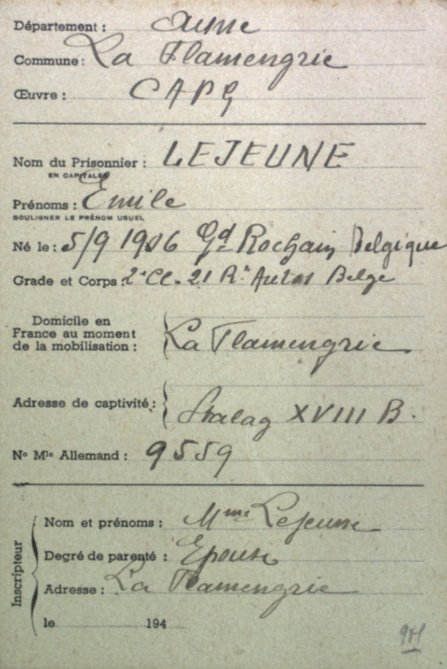 Département : Aisne
Commune : La Flamengrie
Œuvre : CAPG
Nom du Prisonnier : LEJEUNE
EN CAPITALES
Prénoms : Emile
SOULIGNER LE PRÉNOM USUEL
Né le : 5/9 1906 Gd Rochain Belgique
Grade et Corps : 2e Cl. 21 R. Autos Belge
Domicile en
France au moment
de la mobilisation : La Flamengrie
Adresse de captivité : Stalag XVIII B.
No Mle Allemand : 9559
Inscripteur
Nom et prénoms : Mme Lejeune
Degré de parenté : Epouse
Adresse : La Flamengrie
le 194